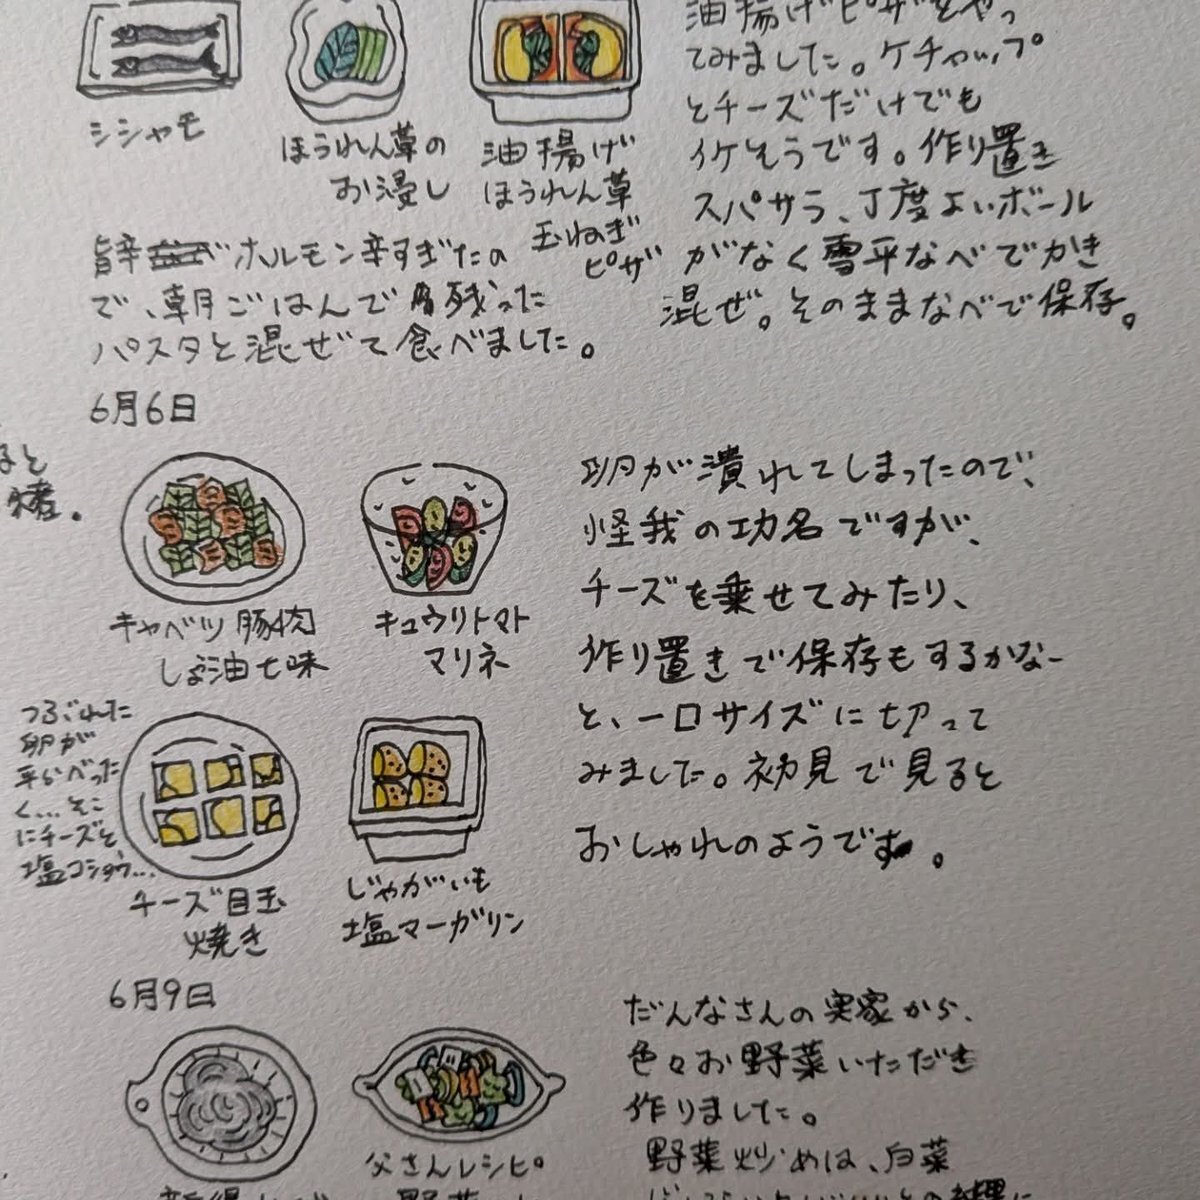 シシャモ
ほうれん草の
お浸し
油揚げ
ほうれん草
玉ねぎ
ピザ
油揚げピザをやっ
てみました。ケチャップ
とチーズだけでも
イケそうです。作り置き
スパサラ、丁度よいボール
がなく雪平なべでかき
混ぜ。そのままなべで保存。
旨辛 ホルモン辛すぎたの
で、朝ごはんで残った
パスタと混ぜて食べました。
6月6日
ると
烤。
キャベツ豚肉
しょう油七味
キュウリトマト
マリネ
つぶれた
卵が
平らべった
く…そこ
にチーズと
塩コショウ…
チーズ目玉
焼き
じゃがいも
塩マーガリン
卵が潰れてしまったので、
怪我の功名ですが、
チーズを乗せてみたり、
作り置きで保存もするかなー
と、一口サイズに切って
みました。初見で見ると
おしゃれのようです。
6月9日
父さんレシピ
だんなさんの実家から、
色々お野菜いただき
作りました。
野菜炒めは、白菜